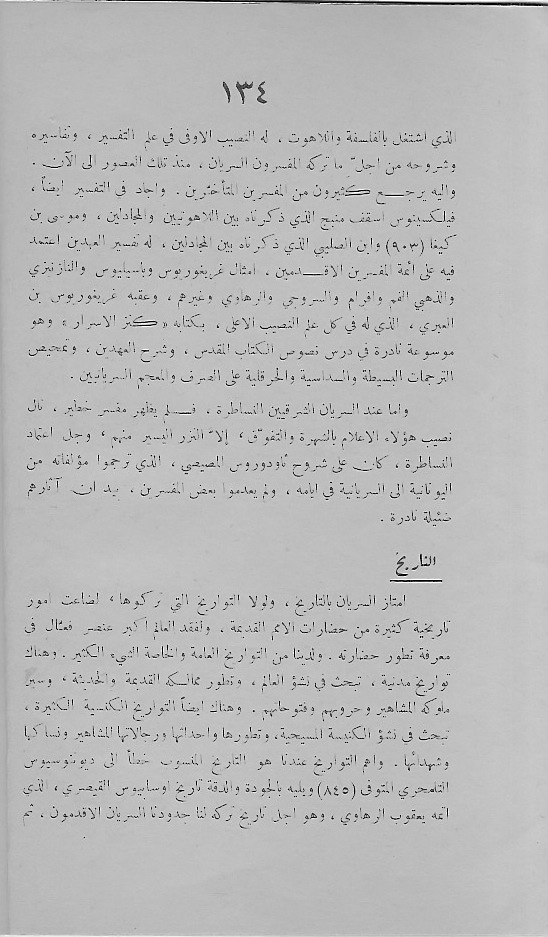 ١٣٤
الذي اشتغل بالفلسفة واللاهوت ، له النصيب الاوفى في علم التفسير ، وتفاسيره
وشروحه من اجلّ ما تركه المفسرون السريان ، منذ تلك العصور الى الآن .
واليه يرجع كثيرون من المفسرين المتأخرين . واجاد في التفسير ايضاً ،
فيلكسينوس اسقف منبج الذي ذكرناه بين اللاهوتيين والمجادلين ، وموسى بن
كيفا (٩٠٣) وابن الصليبي الذي ذكرناه بين المجادلين ، له تفسير العهدين اعتمد
فيه على أئمة المفسرين الاقدمين ، امثال غريغوريوس وباسيليوس والنازينزي
والذهبي الفم وافرام والسروجي والرهاوي وغيرهم ، وعقبه غريغوريوس بن
العبري ، الذي له في كل علم النصيب الاعلى ، بكتابه « كنز الاسرار » وهو
موسوعة نادرة في درس نصوص الكتاب المقدس ، وشرح العهدين ، وتمحيص
الترجمات البسيطة والسداسية والحرقلية على الصرف والمعجم السريانيين .
واما عند السريان الشرقيين النساطرة ، فلم يظهر مفسر خطير ، نال
نصيب هؤلاء الاعلام بالشهرة والتفوّق ، إلاّ النزر اليسير منهم ، وجل اعتماد
النساطرة ، كان على شروح ثاودوروس المصيصي ، الذي ترجموا مؤلفاته من
اليونانية الى السريانية في ايامه ، ولم يعدموا بعض المفسرين ، بيد ان آثارهم
ضئيلة نادرة .
التاريخ
امتاز السريان بالتاريخ ، ولولا التواريخ التي تركوها ، لضاعت امور
تاريخية كثيرة من حضارات الامم القديمة ، ولفقد العالم اكبر عنصر فعّال في
معرفة تطور حضارته . ولدينا من التواريخ العامة والخاصة الشيء الكثير . وهناك
تواريخ مدنية ، تبحث في نشؤ العالم ، وتطور ممالكه القديمة والحديثة ، وسير
ملوكه المشاهير وحروبهم وفتوحاتهم . وهناك ايضاً التواريخ الكنسية الكثيرة ،
تبحث في نشؤ الكنيسة المسيحية، وتطورها واحداثها ورجالاتها المشاهير ونساكها
وشهدائها . واهم التواريخ عندنا هو التاريخ المنسوب خطأً الى ديونوسيوس
التلمحري المتوفى (٨٤٥) ويليه بالجودة والدقة تاريخ اوسابيوس القيصري ، الذي
اتمه يعقوب الرهاوي ، وهو اجل تاريخ تركه لنا جدودنا السريان الاقدمون ، ثم